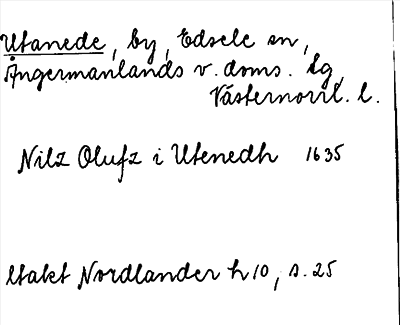 Utanede, by, Edsele sn,
Ångermanlands v. doms. lg,
Västernorrl. l.
Nilz Olufz i Utenedh 1635
Utakt Nordlander h 10, s. 25